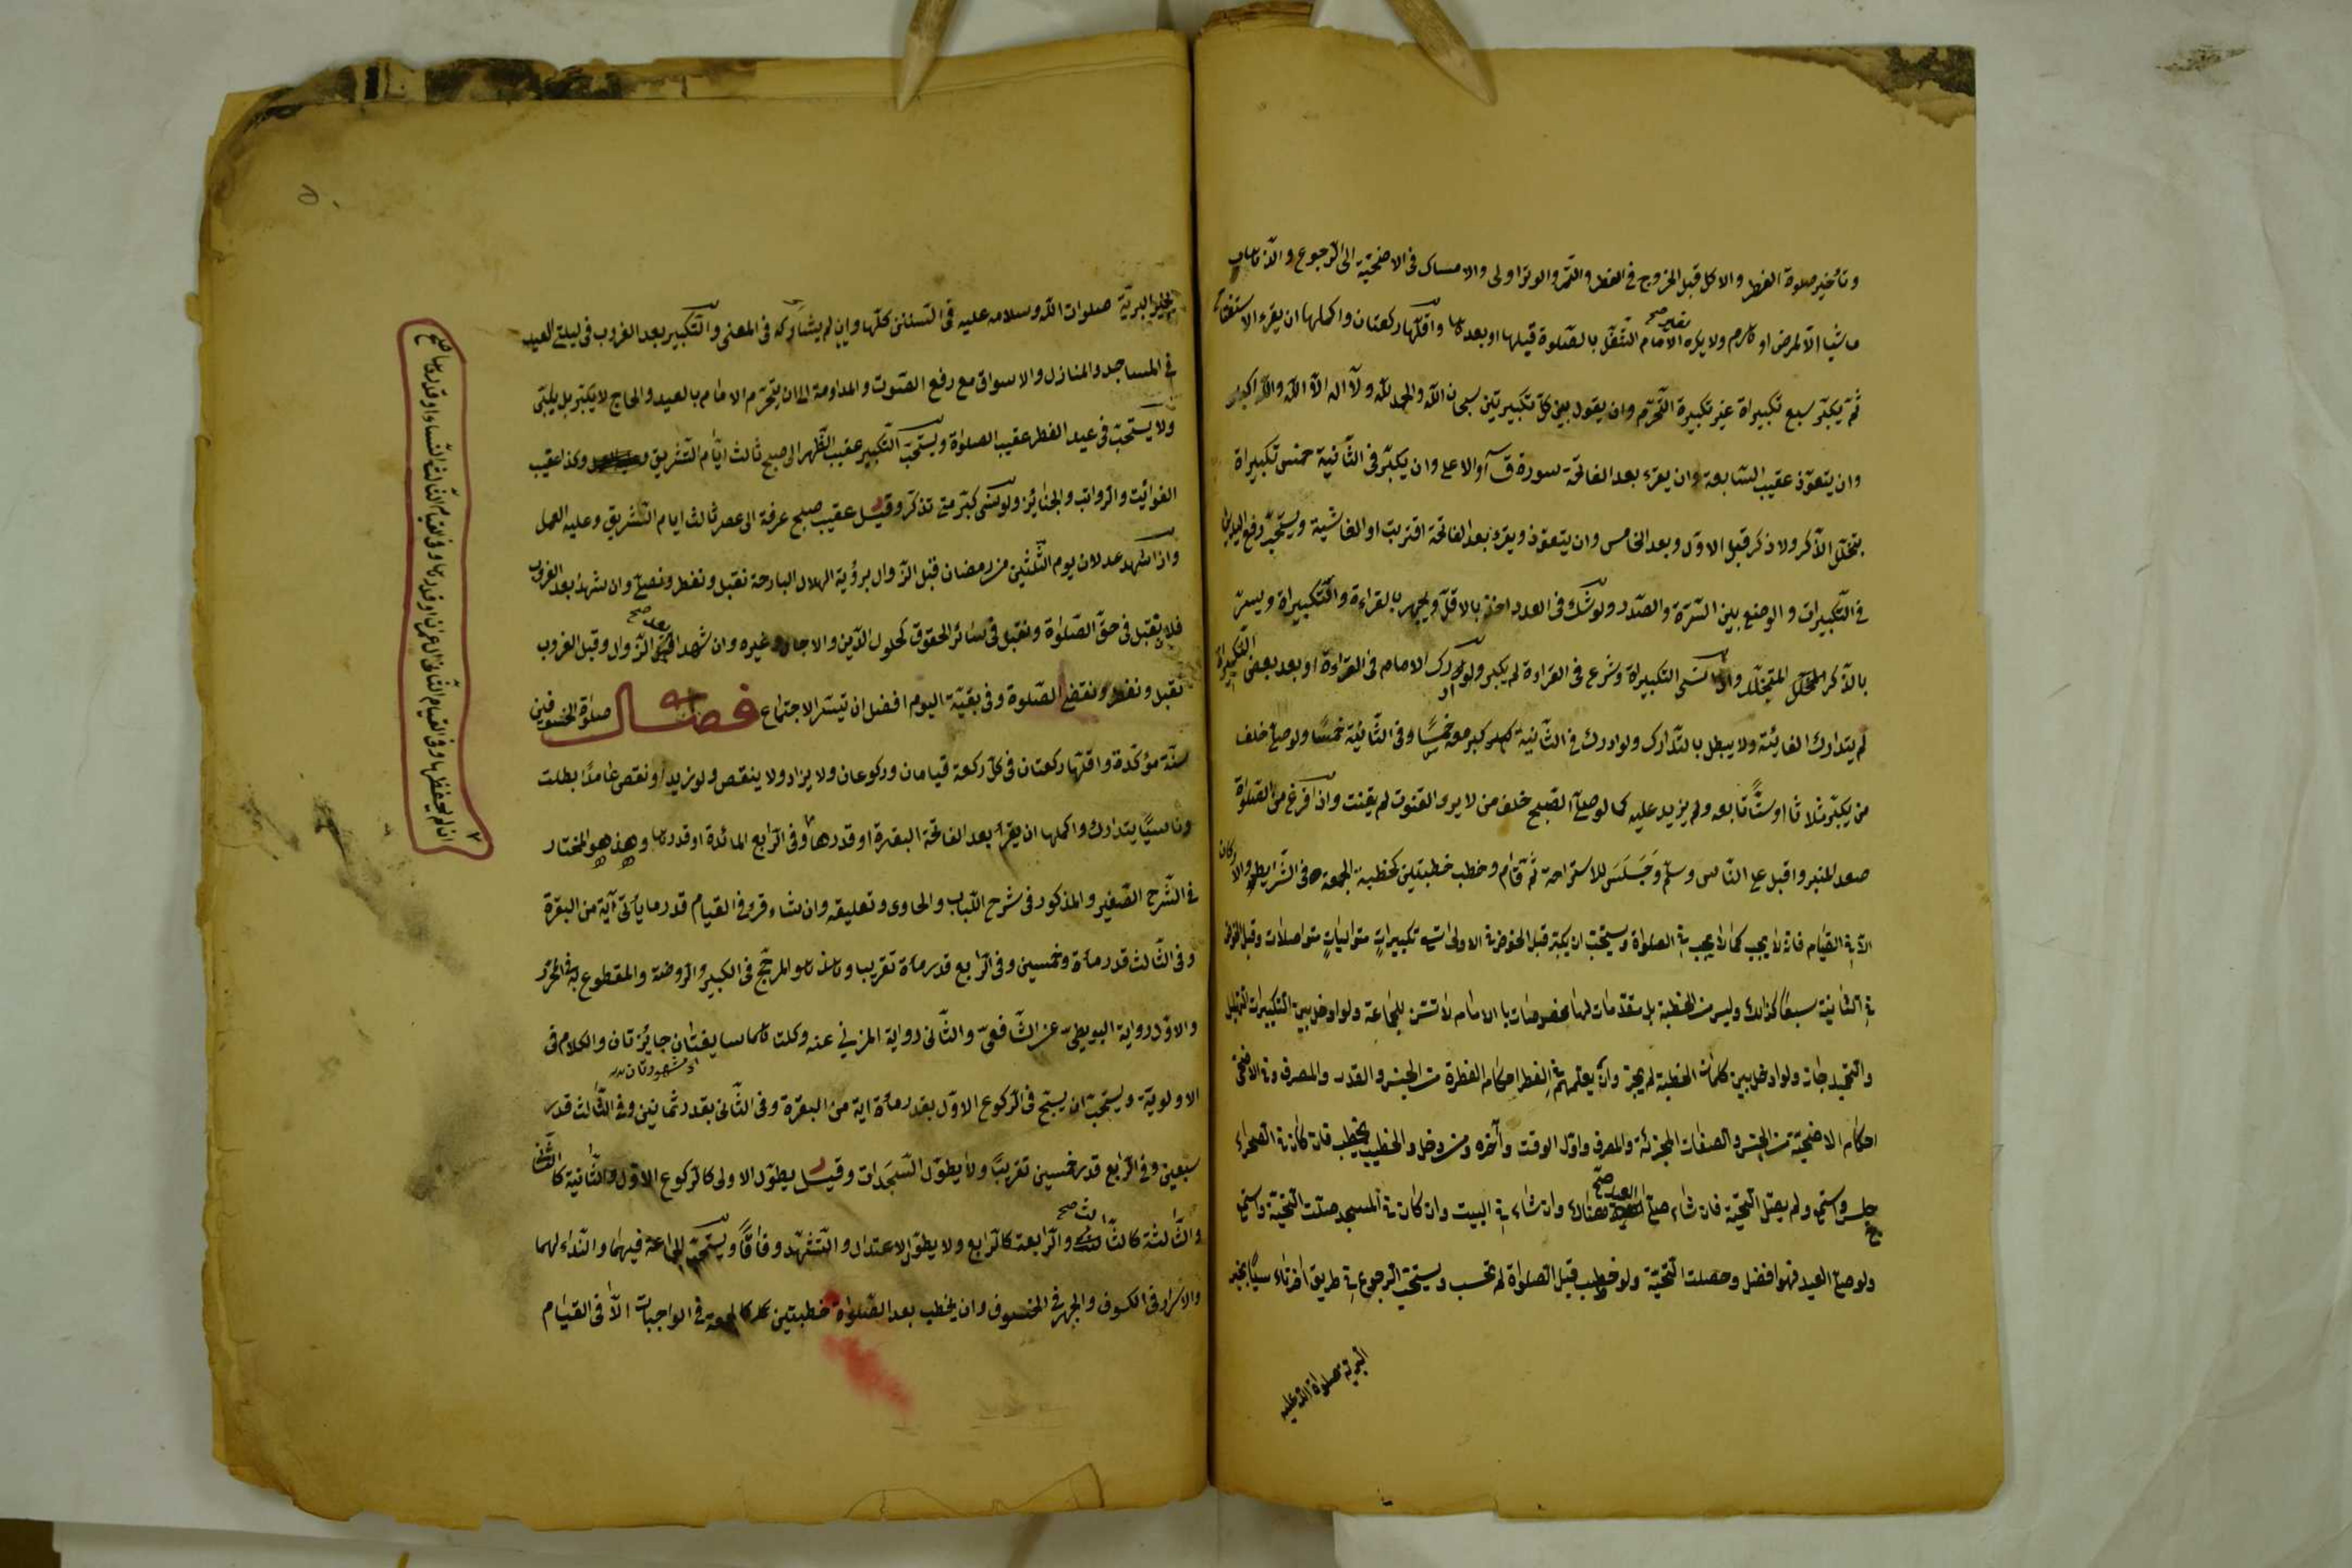 وتأخير صلوة الفطر والاكل قبل الخروج فى الفطر والتمر والوتر اولى والامساك فى الاضحية الى الرجوع والاتيان
ماشيا الا لمرض او هرم ولا يكره لغير الامام التنفل بالصلوة قبلها او بعدها واقلها ركعتان واكملها ان يقرء الاستفتاح
ثم يكبر سبع تكبيراة غير تكبيرة التحرم وان يقول بين كل تكبيرتين سبحان الله والحمد لله ولا اله الا الله والله اكبر
وان يتعوذ عقيب السابعة وان يقرء بعد الفاتحة سورة ق او الاعلى وان يكبر فى الثانية خمس تكبيراة
بتخلل الذكر ولا ذكر قبل الاول وبعد الخامس وان يتعوذ ويقرء بعد الفاتحة اقتربت او الغاشية ويستحب رفع اليدين
فى التكبيرات والوضع بين السرة والصدر ولو شك فى العدد اخذ بالاقل ويجهر بالقراءة والتكبيراة ويسر
بالذكر المتخلل واذا نسى التكبيراة وشرع فى القراءة لم يكبر ولو ادرك الامام فى القراءة او بعد بعض التكبيراة
لم يتدارك الفائتة ولا يبطل بالتدارك ولو ادرك فى الثانية كبر معه خمسًا وفى الثانية خمسًا ولو صلى خلف
من يكبر ثلاثا او ستًا تابعه ولم يزيد عليه كما لو صلى الصبح خلف من لا يرو القنوت لم يقنت واذا فرغ من الصلوة
صعد المنبر واقبل على الناس وسلم وجَلَسَ للاستراحة ثم قام وخطب خطبتين كخطبة الجمعة فى الشرايط والاركان
الا فى القيام فانه لا يجب كما لا يجب فى الصلوة ويستحب ان يكبر قبل الخوض فى الاولى تسع تكبيراتٍ متوالياتٍ متواصلات وقبل الخوض
فى الثانية سبعًا كذالك وليس من الخطبة بل مقدمات لها مخصوصات بالامام لا تسن للجماعة ولو ادخل بين التكبيرات التهليل
والتحميد جاز ولو ادخل بين كلمات الخطبة لم يجز وان يعلمهم فى الفطر احكام الفطرة من الجنس والقدر والمصرف وفى الاضحى
احكام الاضحية من الجنس والصفات المجزئة والمصرف واول الوقت وآخره ومن دخل والخطيب يخطب فان كان فى الصحراء
جلس واستمع ولم يصل التحية فان شاء صلى العيد صح هناك وان شاء فى البيت وان كان فى المسجد صلت التحية واستمع
ولو صلى العيد فهو افضل وحصلت التحية ولو خطب قبل الصلوة لم تحسب ويستحب الرجوع فى طريق اخر تأسيًا بخير
البرية صلواة الله عليه
بخير البرية صلوات الله وسلامه عليه فى التسنن كلها وان لم يشاركه فى المعنى والتكبير بعد الغروب فى ليلتى العيد
فى المساجد والمنازل والاسواق مع رفع الصوت والمداومة الى ان يتحرم الامام بالعيد والحاج لا يكبر بل يلبى
ولا يستحب فى عيد الفطر عقيب الصلوة ويستحب التكبير عقيب الظهر الى صبح ثالث ايام التشريق وكذا عقيب
الفوائت والرواتب والجنايز ولو نسى كبر متى تذكر وقيل عقيب صبح عرفة الى عصر ثالث ايام التشريق وعليه العمل
واذا شهد عدلان يوم الثلثين من رمضان قبل الزوال برؤية الهلال البارحة نقبل ونفطر ونصلى وان شهد بعد الغروب
فلا يقبل فى حق الصلوة ونقبل فى سائر الحقوق كحلول الدين والاجل وغيره وان شهد بعد صح الزوال وقبل الغروب
نقبل ونفطر ونقضى الصلوة وفى بقية اليوم افضل ان تيسر الاجتماع فصل صلوة الخسوفين
سنة مؤكدة واقلها ركعتان فى كل ركعة قيامان وركوعان ولا يزاد ولا ينقص ولو زيد او نقص عامدًا بطلت
وناسيًا يتدارك واكملها ان يقرأ بعد الفاتحة البقرة او قدرها وفى الرابع المائدة او قدرها وهذا هو المختار
فى الشرح الصغير والمذكور فى شرح اللباب والحاوى وتعليقه وان شاء قرء فى القيام قدر مأتى آية من البقرة
وفى الثالث قدر مأة وخمسين وفى الرابع قدر مأة تقريبا وهذا هو المرجح فى الكبير والروضة والمقطوع به فى المحرر
والاول رواية البويطى عن الشافعى والثانى رواية المزني عنه وكلتاهما سايغتان جايزتان والكلام فى
او مشهورتان
الاولوية ويستحب ان يسبح فى الركوع الاول بقدر مأة اية من البقرة وفى الثانى بقدر ثمانين وفى الثالث قدر
سبعين وفى الرابع قدر خمسين تقريبًا ولا يطول السجدات وقيل يطول الاولى كالركوع الاول والثانية كالثانى
والثالثة كالثالث صح والرابعة كالرابع ولا يطول الاعتدال والتشهد وفاقًا ويستحب الجماعة فيهما والنداء لهما
والاسرار فى الكسوف والجهر فى الخسوف وان يخطب بعد الصلوة خطبتين كالجمعة فى الواجبات الا فى القيام
ان لم يحفظها وفى القيام الثانى ال عمران او قدرها وفى القيام الثالث النساء او قدرها صح